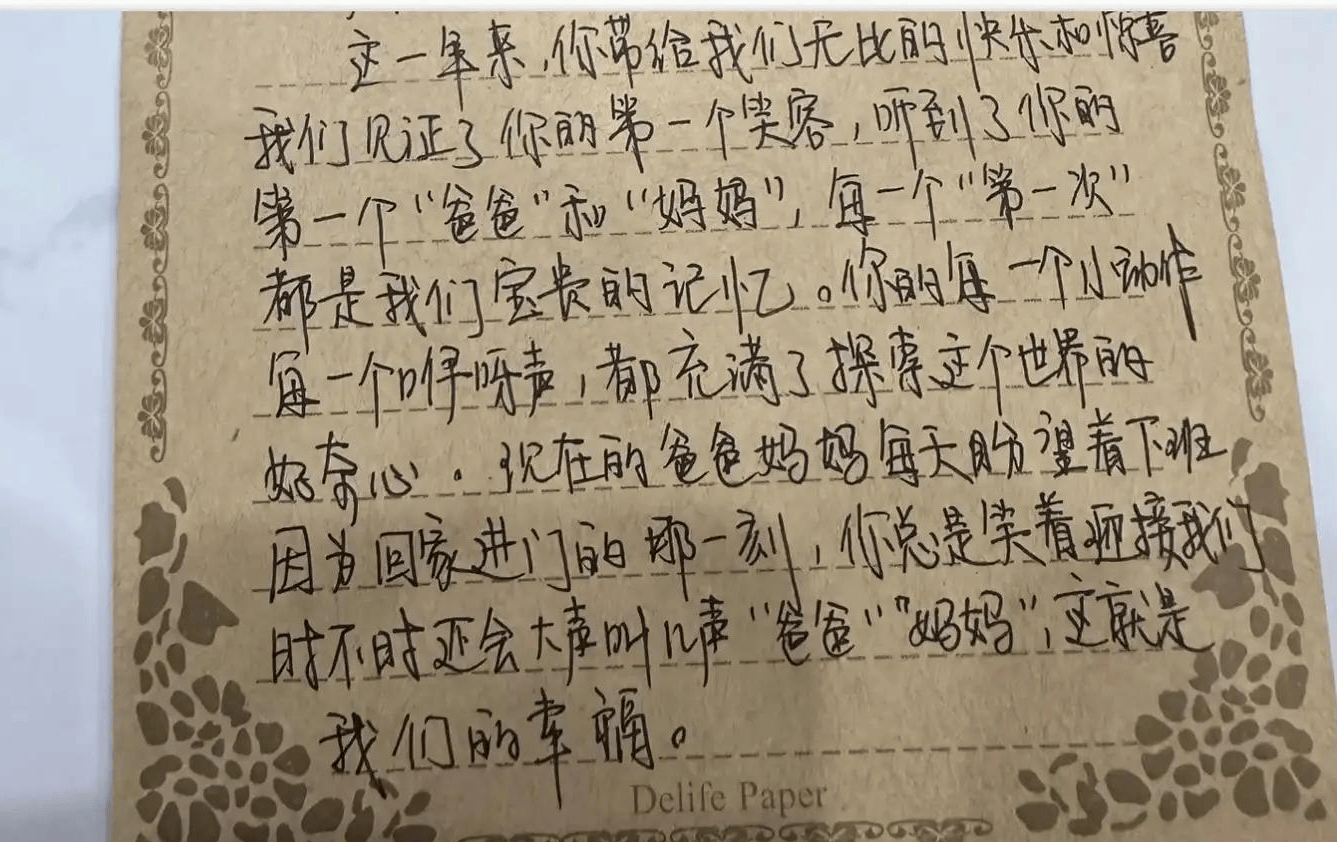 这一年来,你带给我们无比的快乐和惊喜
我们见证了你的第一个笑容,听到了你的
第一个“爸爸”和“妈妈”,每一个“第一次”
都是我们宝贵的记忆。你的每一个小动作
每一个咿呀声,都充满了探索这个世界的
好奇心。现在的爸爸妈妈每天盼望着下班
因为回家进门的那一刻,你总是笑着迎接我们
时不时还会大声叫几声“爸爸”“妈妈”,这就是
我们的幸福。
Delife Paper